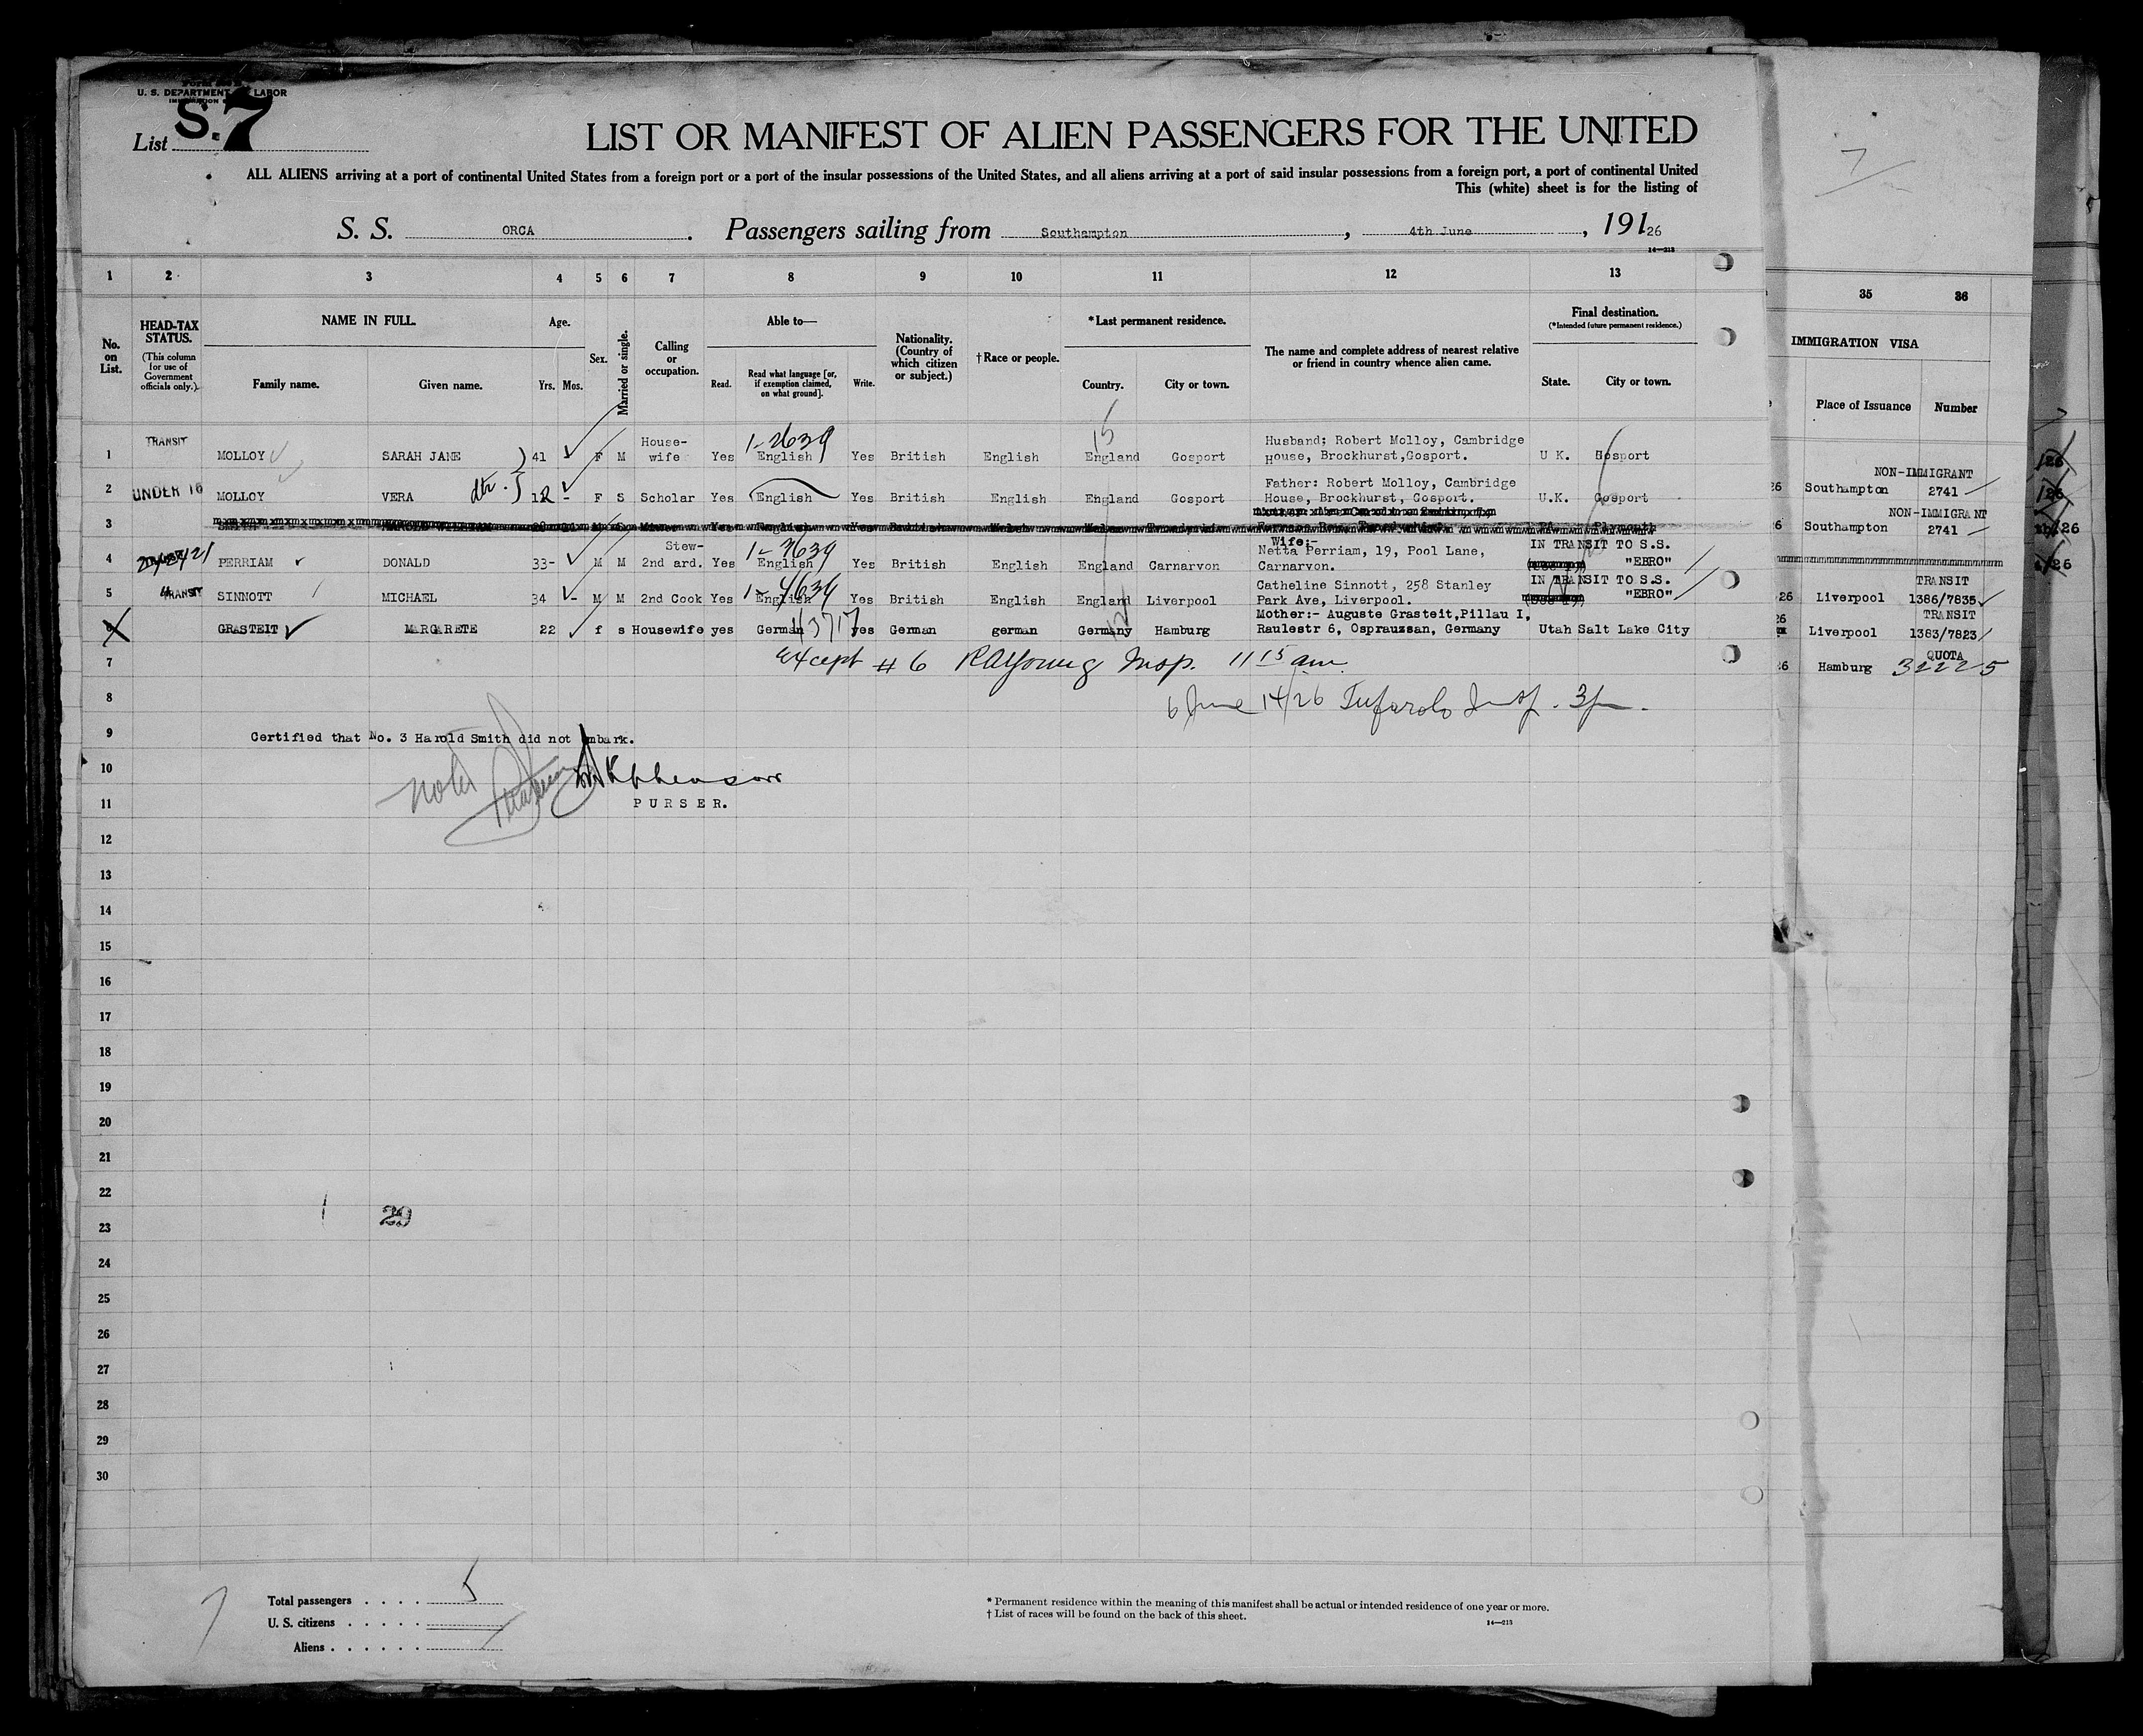 U. S. DEPARTMENT LABOR
List S. 7
LIST OR MANIFEST OF ALIEN PASSENGERS FOR THE UNITED
ALL ALIENS arriving at a port of continental United States from a foreign port or a port of the insular possessions of the United States, and all aliens arriving at a port of said insular possessions from a foreign port, a port of continental United
This (white) sheet is for the listing of
S. S. ORCA. Passengers sailing from Southampton, 4th June, 191 26
14—213
1 2 3 4 5 6 7 8 9 10 11 12 13 35 36
No. on List.
HEAD-TAX STATUS. (This column for use of Government officials only.)
NAME IN FULL. Family name. Given name.
Age. Yrs. Mos.
Sex.
Married or single.
Calling or occupation.
Able to— Read. Read what language [or, if exemption claimed, on what ground]. Write.
Nationality. (Country of which citizen or subject.)
†Race or people.
*Last permanent residence. Country. City or town.
The name and complete address of nearest relative or friend in country whence alien came.
Final destination. (*Intended future permanent residence.) State. City or town.
IMMIGRATION VISA
Place of Issuance Number
15
1 TRANSIT MOLLOY SARAH JANE 41 F M House-wife Yes English Yes British English England Gosport Husband: Robert Molloy, Cambridge House, Brockhurst, Gosport. U K. Gosport
2 UNDER 16 MOLLOY VERA 12 - F S Scholar Yes English Yes British English England Gosport Father: Robert Molloy, Cambridge House, Brockhurst, Gosport. U.K. Gosport
3 SMITH HAROLD Plymouth
4 PERRIAM DONALD 33- M M 2nd Stew-ard. Yes English Yes British English England Carnarvon Wife:- Netta Perriam, 19, Pool Lane, Carnarvon. IN TRANSIT TO S.S. "EBRO"
5 TRANSIT SINNOTT MICHAEL 34 - M M 2nd Cook Yes English Yes British English England Liverpool Catheline Sinnott, 258 Stanley Park Ave, Liverpool. IN TRANSIT TO S.S. "EBRO"
6 GRASTEIT MARGARETE 22 f s Housewife yes German yes German german Germany Hamburg Mother:- Auguste Grasteit, Pillau I, Raulestr 6, Osprauzsan, Germany Utah Salt Lake City
26 Southampton NON-IMMIGRANT 2741
6 Southampton NON-IMMIGRANT 2741
26 Liverpool TRANSIT 1386/7835
26 Liverpool TRANSIT 1383/7823
26 Hamburg QUOTA 32225
7 except #6 RAYoung Insp. 11 15 am
8 6 June 14/26 Insp. 3 pm.
9 Certified that No. 3 Harold Smith did not embark.
10 noted
11 PURSER.
12
13
14
15
16
17
18
19
20
21
22
23 29
24
25
26
27
28
29
30
Total passengers . . . . 5
U. S. citizens . . . . .
Aliens . . . . . .
* Permanent residence within the meaning of this manifest shall be actual or intended residence of one year or more.
† List of races will be found on the back of this sheet.
14—213